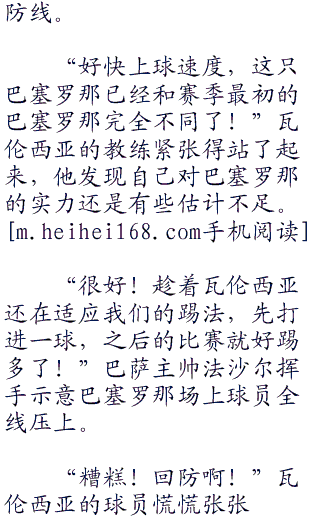 防线。
“好快上球速度，这只
巴塞罗那已经和赛季最初的
巴塞罗那完全不同了！”瓦
伦西亚的教练紧张得站了起
来，他发现自己对巴塞罗那
的实力还是有些估计不足。
[m.heihei168.com手机阅读]
“很好！趁着瓦伦西亚
还在适应我们的踢法，先打
进一球，之后的比赛就好踢
多了！”巴萨主帅法沙尔挥
手示意巴塞罗那场上球员全
线压上。
“糟糕！回防啊！”瓦
伦西亚的球员慌慌张张